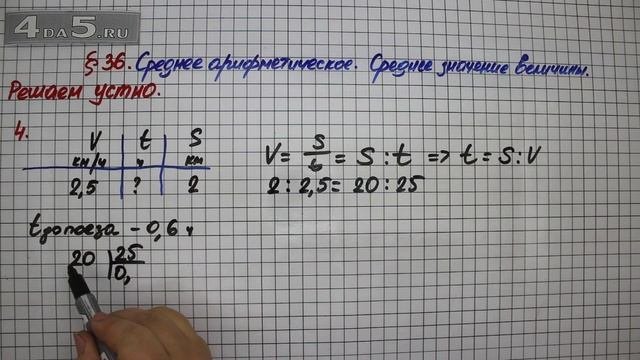 4DA5.RU
§ 36. Среднее арифметическое. Среднее значение величины.
Решаем устно.
4.
V t S
км/ч ч км
2,5 ? 2
V = S/t = S : t => t = S : V
2 : 2,5 = 20 : 25
t до поезда - 0,6 ч
20 | 25
0,